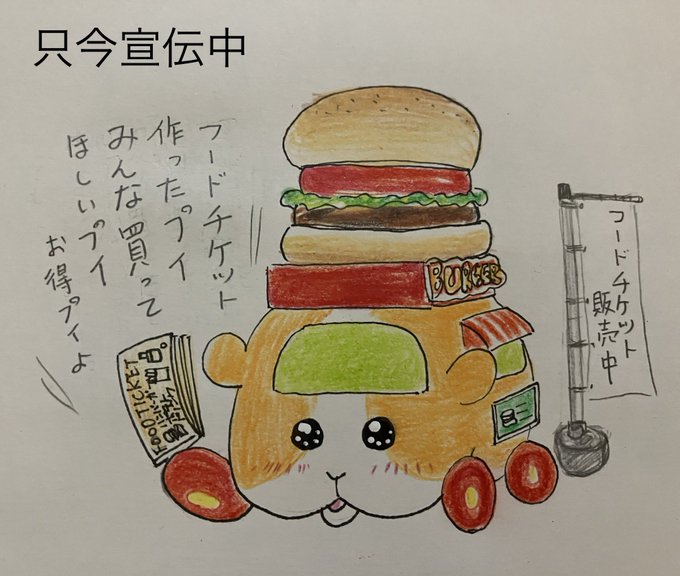 只今宣伝中
フードチケット
作ったプイ
みんな買って
ほしいプイ
お得プイよ
BURGER
FOOD TICKET
フードチケット
販売中